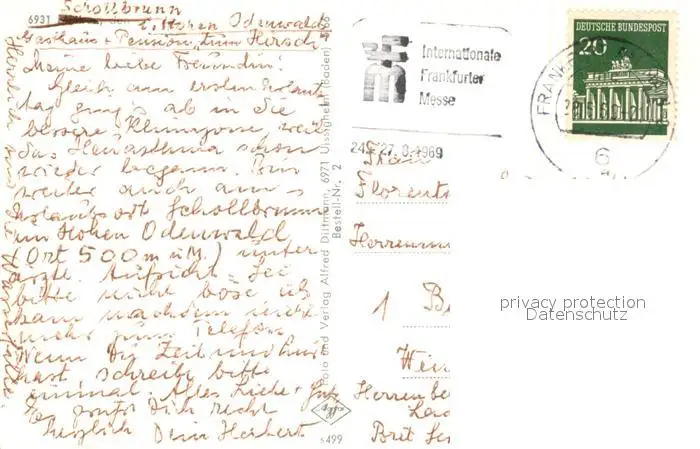 Schollbrunn
6931
i. Hohen Odenwald
Gasthaus + Pension "zum Hirsch"
Meine liebe Freundin!
Gleich am ersten Urlaubs
tag ging's ab in die
bessere Klimazone, weil
das Heuasthma schon
wieder begann. Bin
weiter auch am
Urlaubsort Schollbrunn
im Hohen Odenwald
(Ort 500 m ü M.) unter
ärztl. Aufsicht. Sei
bitte nicht böse ich
kam nachdem nicht
mehr zum Telefon
Wenn Du Zeit und
hast schreibe bitte
einmal. Alles Liebe +
Es grüßt Dich recht
herzlich Dein Herbert
Foto und Verlag Alfred Dittmann, 6971 Uissigheim (Baden)
Bestell-Nr. 2
s499
Internationale
Frankfurter
Messe
24. 27. 8. 1969
DEUTSCHE BUNDESPOST
20
FRANKF
6
Frau
Florent
1 B
Wei
privacy protection
Datenschutz